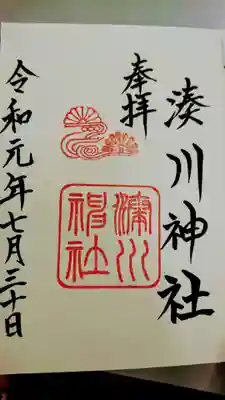 奉拝
湊川神社
湊川神社
令和元年七月三十日